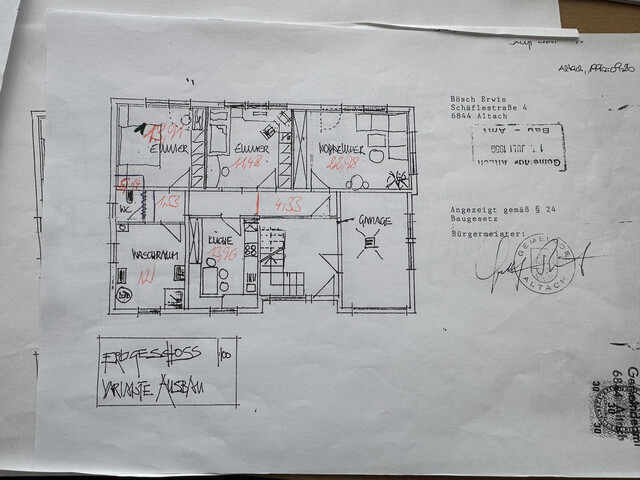 Bösch Erwin
Schäflestraße 4
6844 Altach
Gemeinde Altach
Bau - Amt
17. JULI 1996
Angezeigt gemäß § 24
Baugesetz
Bürgermeister:
GEMEINDE
ALTACH
ZIMMER
ZIMMER
11,48
WOHNZIMMER
22,98
WC
1,53
4,33
GARAGE
KÜCHE
13,96
WASCHRAUM
ERDGESCHOSS
100
VARIANTE AUSBAU
Gemeindeamt
6844 Altach
30
30
30